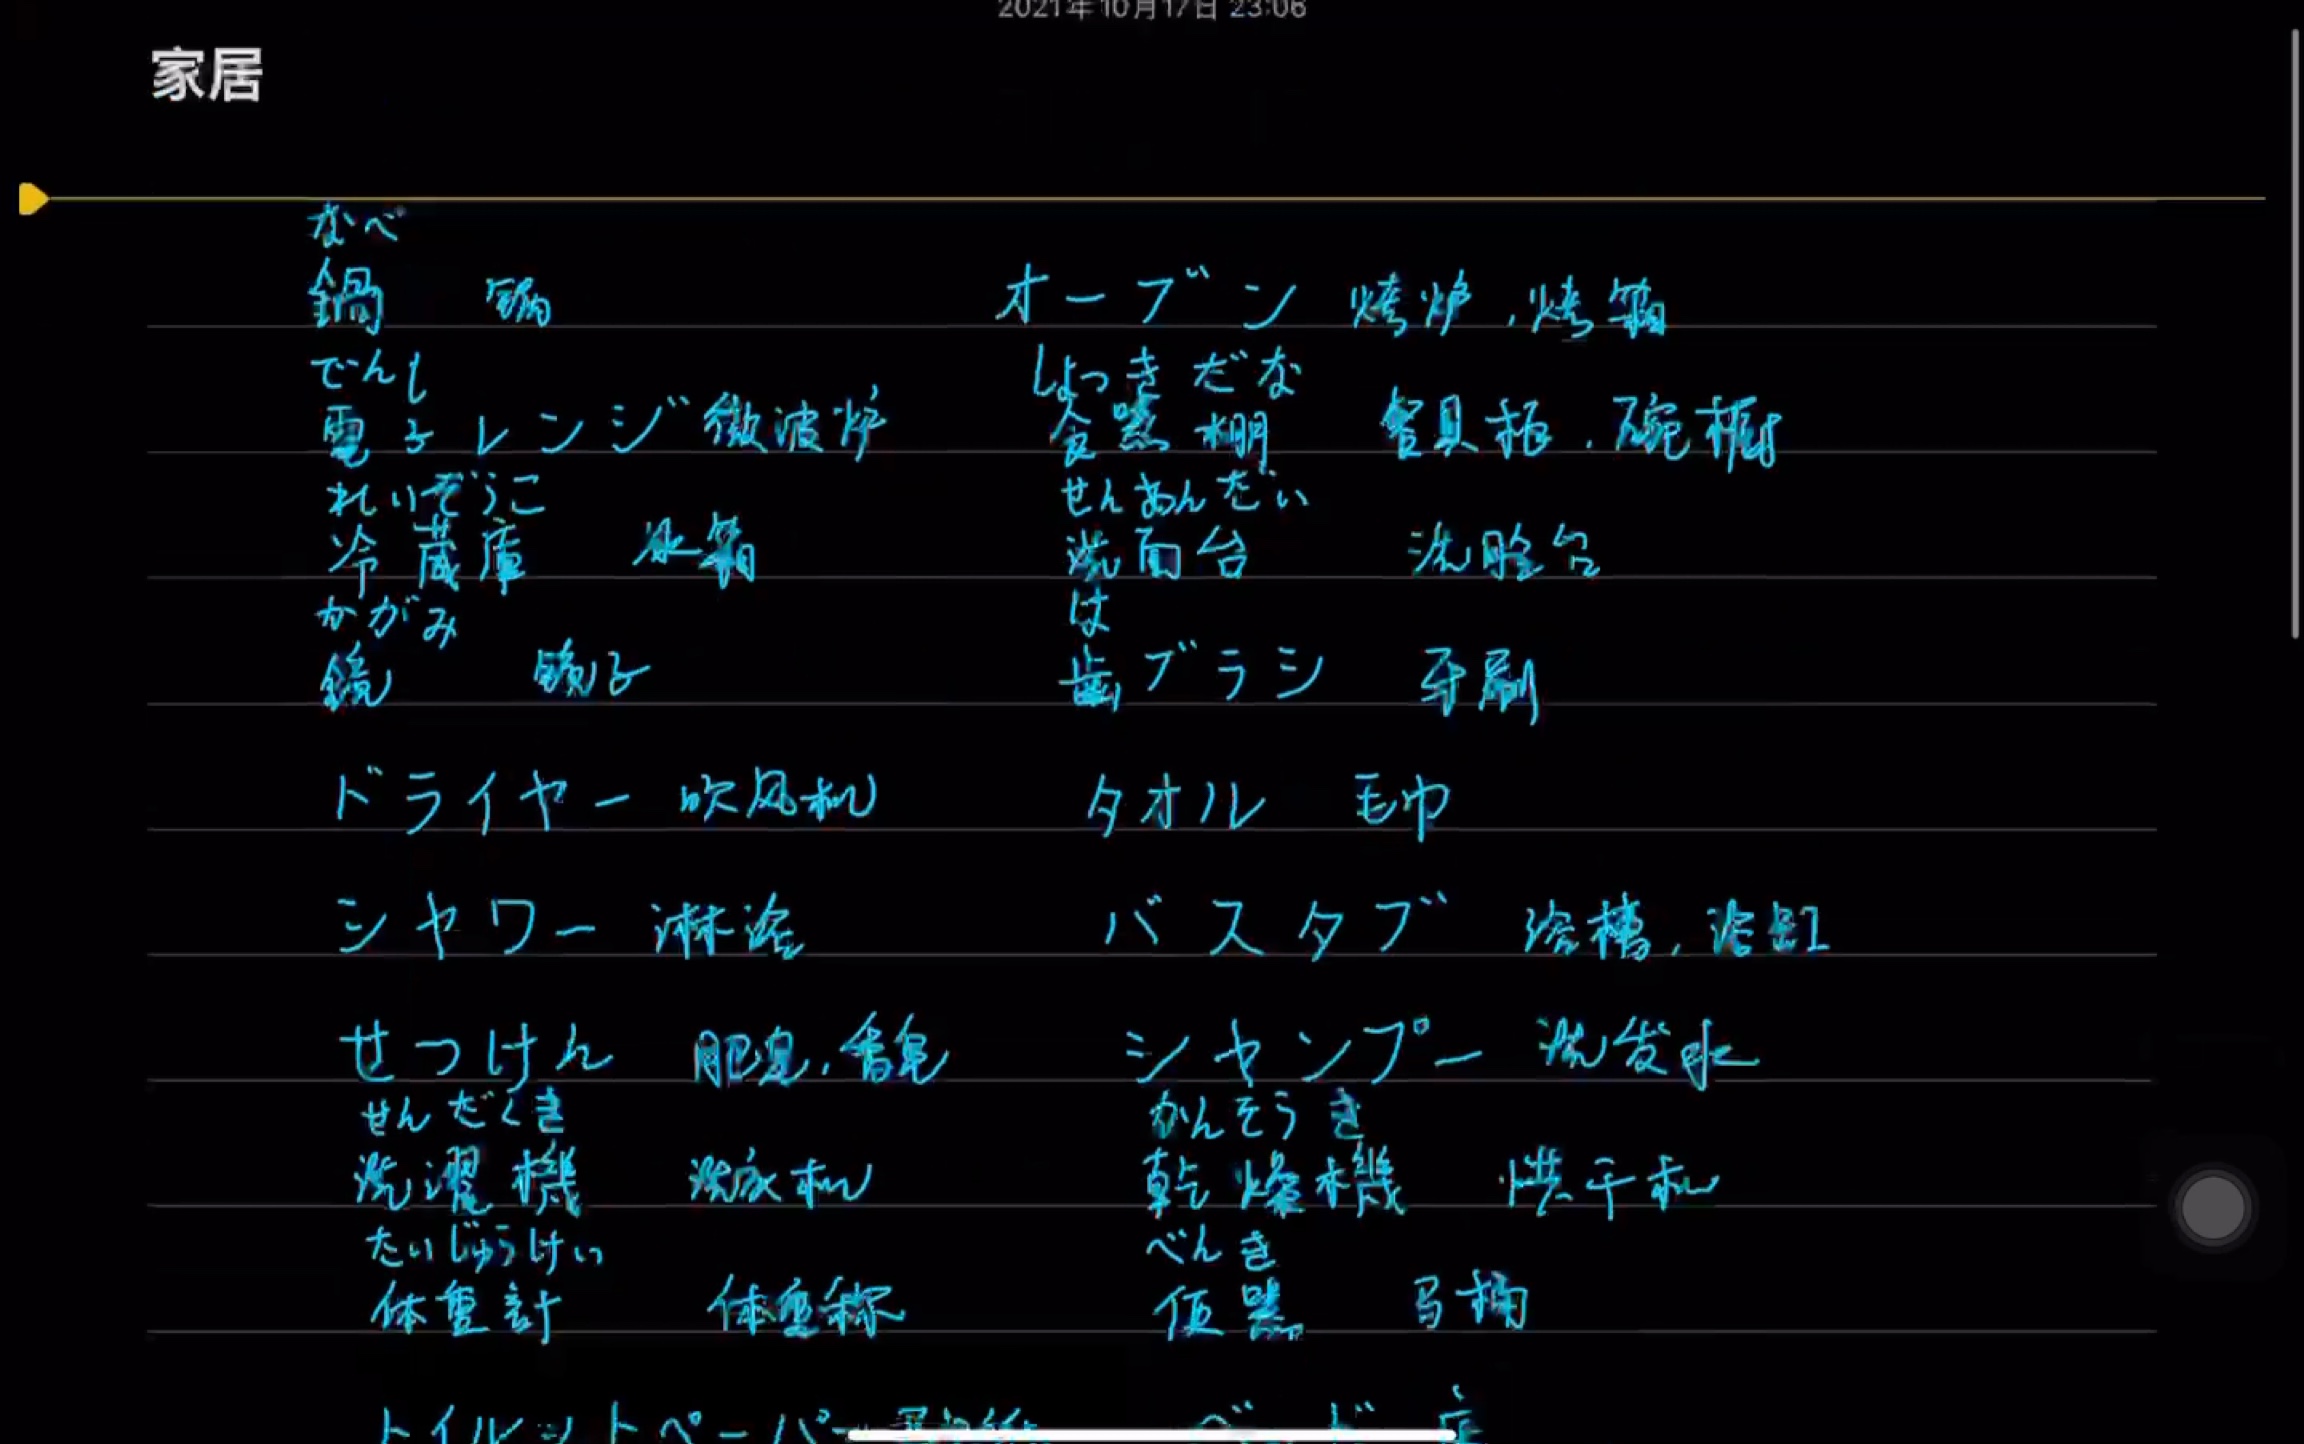 2021年10月17日 23:06
家居
なべ
鍋 锅 オーブン 烤炉,烤箱
でんし しょっきだな
電子レンジ 微波炉 食器棚 餐具柜,碗橱
れいぞうこ せんめんだい
冷蔵庫 冰箱 洗面台 洗脸台
かがみ は
鏡 镜子 歯ブラシ 牙刷
ドライヤー 吹风机 タオル 毛巾
シャワー 淋浴 バスタブ 浴槽,浴缸
せっけん 肥皂,香皂 シャンプー 洗发水
せんだくき かんそうき
洗濯機 洗衣机 乾燥機 烘干机
たいじゅうけい べんき
体重計 体重称 便器 马桶
トイレットペーパー ベッド 床